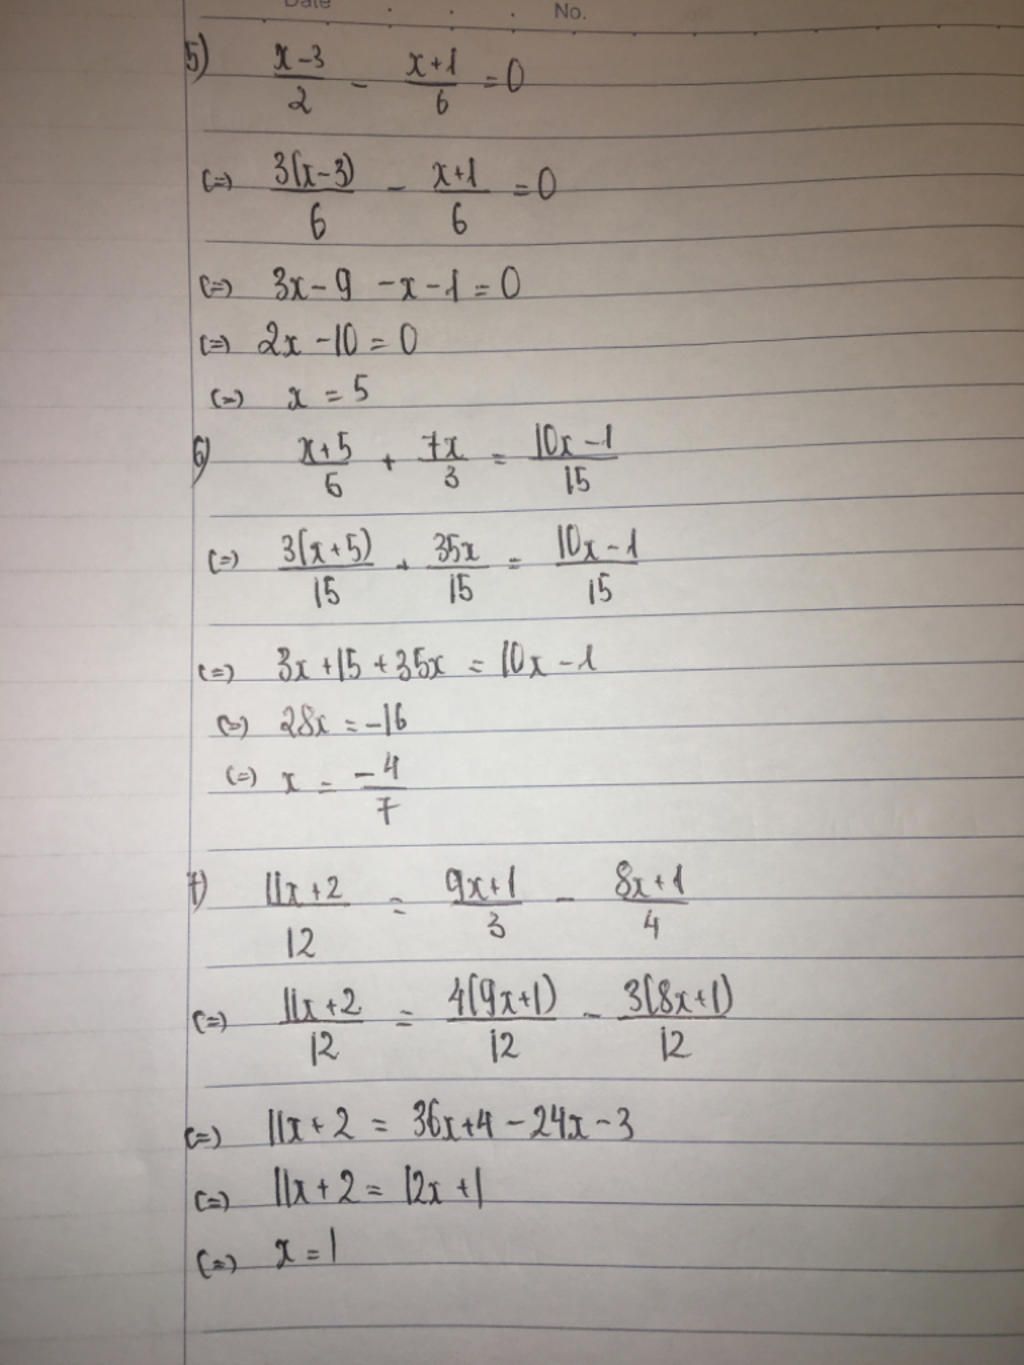 Date No.
5) (x-3)/2 - (x+1)/6 = 0
(=) 3(x-3)/6 - (x+1)/6 = 0
(=) 3x-9 -x-1 = 0
(=) 2x-10 = 0
(=) x = 5
6) (x+5)/5 + 7x/3 = (10x-1)/15
(=) 3(x+5)/15 + 35x/15 = (10x-1)/15
(=) 3x+15+35x = 10x-1
(=) 28x = -16
(=) x = -4/7
7) (11x+2)/12 = (9x+1)/3 - (8x+1)/4
(=) (11x+2)/12 = 4(9x+1)/12 - 3(8x+1)/12
(=) 11x+2 = 36x+4-24x-3
(=) 11x+2 = 12x+1
(=) x = 1